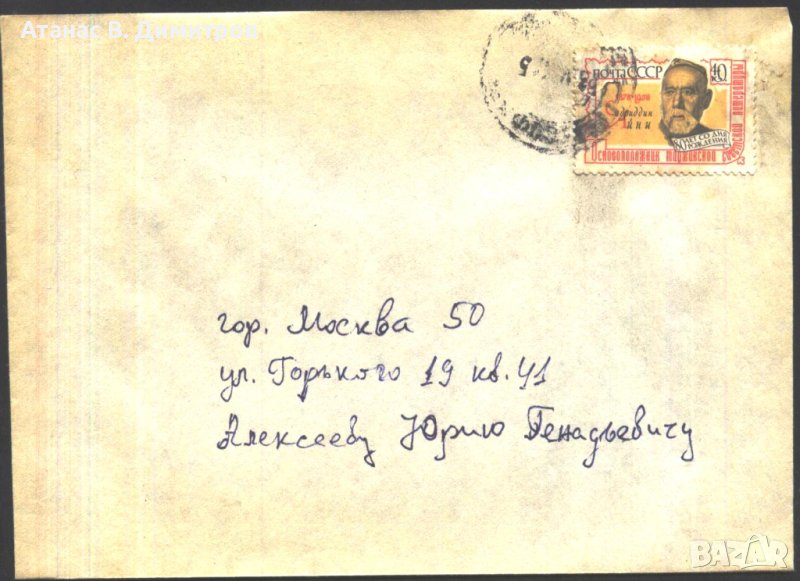 Атанас В. Димитров
ПОЧТА СССР 40
1878•1958
Садриддин
Айни
80 ЛЕТ СО ДНЯ
РОЖДЕНИЯ
Основоположник таджикской советской литературы
гор. Москва 50
ул. Горького 19 кв. 41
Алексееву Юрию Генадьевичу
BAZAR